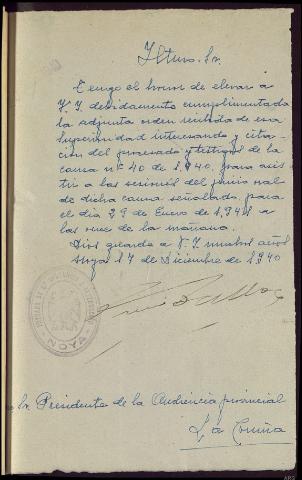 Iltmo. Sr.
Tengo el honor de elevar a
V. I. debidamente cumplimentada
la adjunta orden recibida de esa
Superioridad interesando y cita-
ción del procesado y testigos de la
causa nº 40 de 1.940, para asis
tir a las sesiones del juicio oral
de dicha causa señalado para
el dia 29 de Enero de 1.941 a
las once de la mañana.
Dios guarde a V. I. muchos años
Noya 17 de Diciembre de 1.940
NOYA
Sr. Presidente de la Audiencia provincial
La Coruña